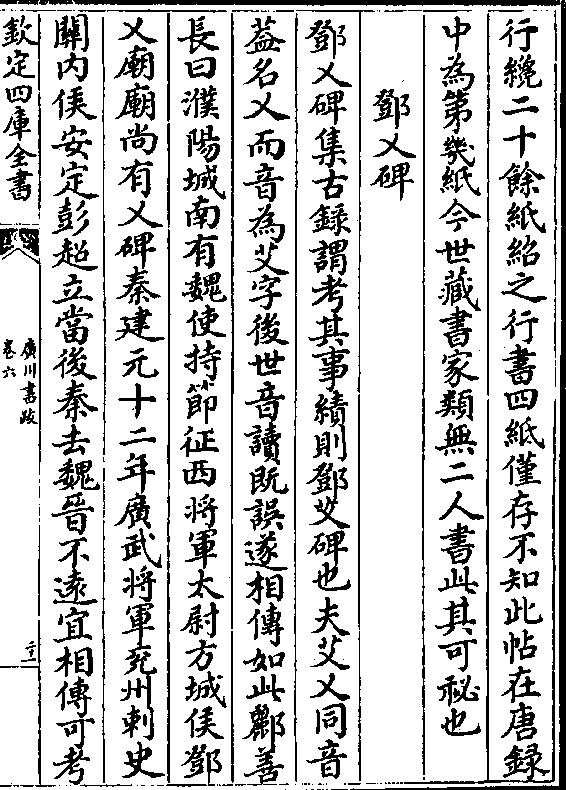 行纔二十餘紙紹之行書四紙僅存不知此帖在唐録
中為第㡬紙今世藏書家類無二人書此其可秘也
鄧乂碑
鄧乂碑集古録謂考其事績則鄧艾碑也夫艾乂同音
葢名乂而音為艾字後世音讀既誤遂相傳如此酈善
長曰濮陽城南有魏使持節征西將軍太尉方城侯鄧
乂廟廟尚有乂碑秦建元十二年廣武將軍兖州刺史
關内侯安定彭超立當後秦去魏晉不逺宜相傳可考
欽定四庫全書
廣川書跋
卷六
二十一